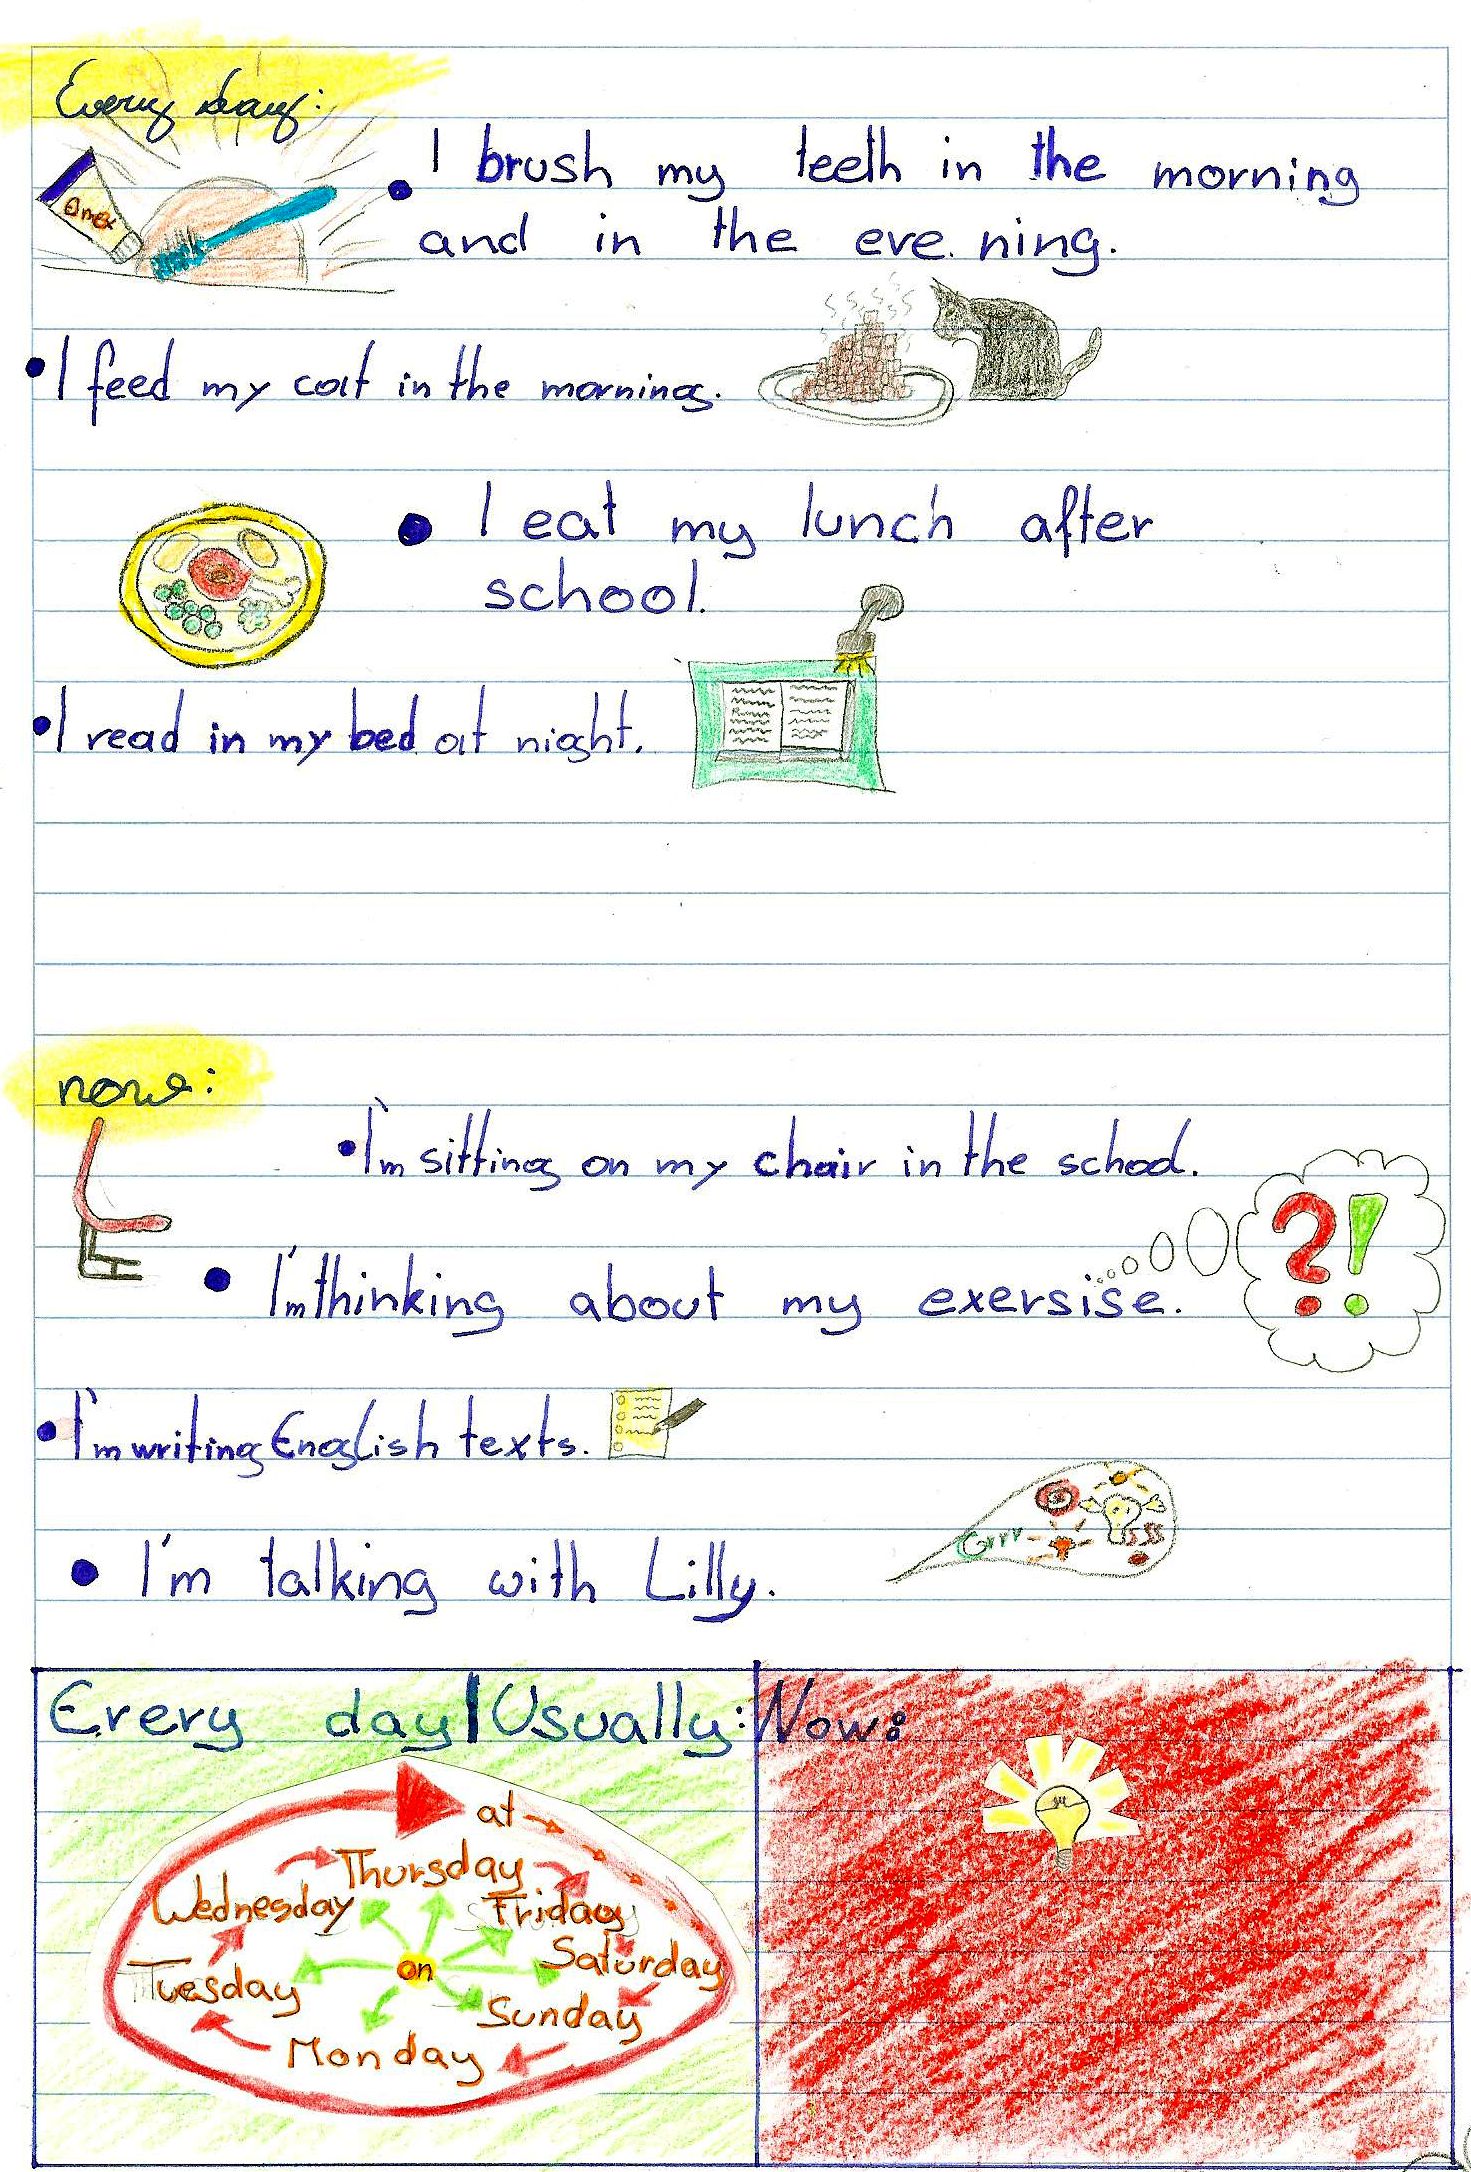 Every day:
• I brush my teeth in the morning
and in the eve.ning.
• I feed my cat in the morning.
• I eat my lunch after
school.
• I read in my bed at night.
now:
• I'm sitting on my chair in the school.
• I'm thinking about my exersise.
?!
• I'm writing English texts.
Grrr
• I'm talking with Lilly.
Every day/Usually: Now:
at
Thursday
Wednesday Friday
on Saturday
Tuesday
Sunday
Monday